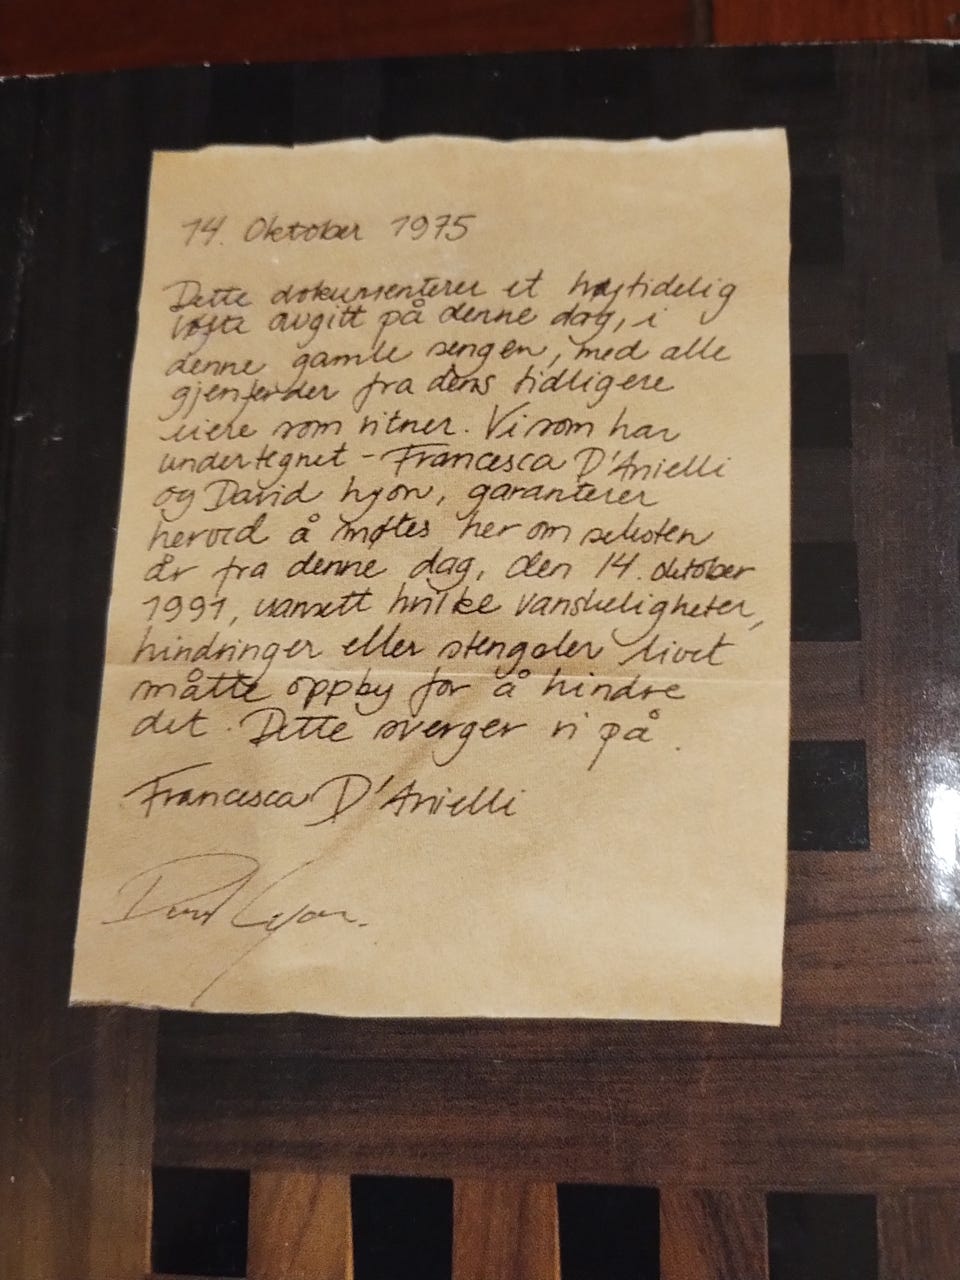 14. Oktober 1975
Dette dokumenterer et høytidelig
løfte avgitt på denne dag, i
denne gamle sengen, med alle
gjenferder fra dens tidligere
eiere som vitner. Vi som har
undertegnet - Francesca D'Anielli
og David Lyon, garanterer
herved å møtes her om seksten
år fra denne dag, den 14. oktober
1991, uansett hvilke vanskeligheter,
hindringer eller stengsler livet
måtte oppby for å hindre
det. Dette sverger vi på.
Francesca D'Anielli
David Lyon.